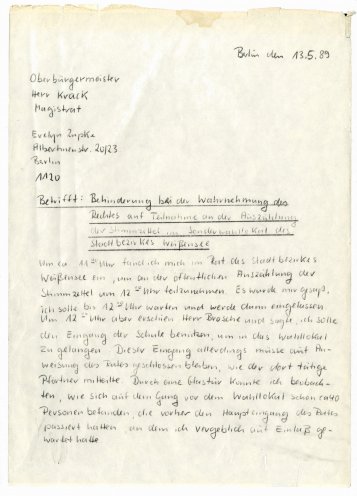 Berlin den 13.5.89
Oberbürgermeister
Herr Krack
Magistrat
Evelyn Zupke
Albertinenstr. 20/23
Berlin
1120
Betrifft: Behinderung bei der Wahrnehmung des
Rechtes auf Teilnahme an der Auszählung
der Stimmzettel im Sonderwahllokal des
Stadtbezirkes Weißensee
Um ca. 11 Uhr fand ich mich im Rat des Stadtbezirkes
Weißensee ein, um an der öffentlichen Auszählung der
Stimmzettel um 12 Uhr teilzunehmen. Es wurde mir gesagt,
ich solle bis 12 Uhr warten und werde dann eingelassen.
Um 12 Uhr aber erschien Herr und sagte, ich solle
den Eingang der Schule benutzen, um in das Wahllokal
zu gelangen. Dieser Eingang allerdings müsste auf An-
weisung des Rates geschlossen bleiben, wie der dort tätige
Pförtner mitteilte. Durch eine Glastür konnte ich beobach-
ten, wie sich auf dem Gang vor dem Wahllokal schon ca 40
Personen befanden, die vorher den Haupteingang des Rates
passiert hatten, an dem ich vergeblich auf Einlaß ge-
wartet hatte.